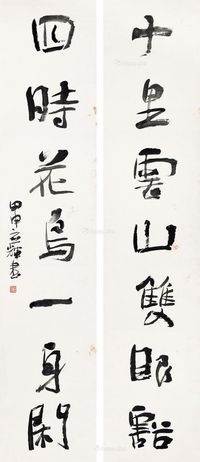 十里雲山雙眼豁
四時花鳥一身閑
甲申立輝書